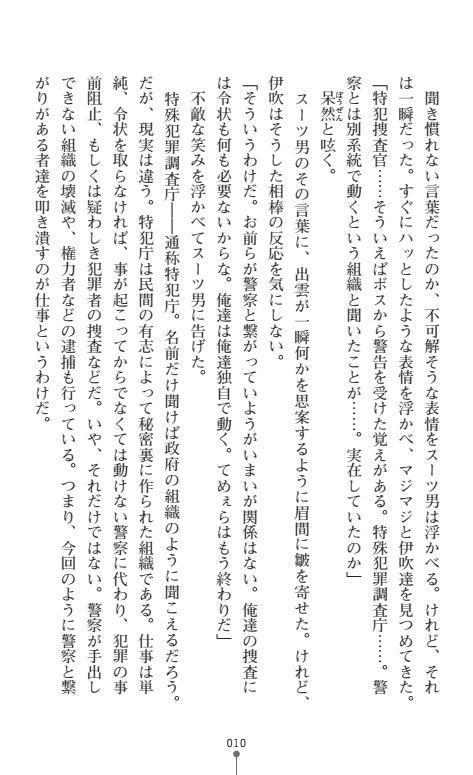 聞き慣れない言葉だったのか、不可解そうな表情をスーツ男は浮かべる。けれど、それ
は一瞬だった。すぐにハッとしたような表情を浮かべ、マジマジと伊吹達を見つめてきた。
「特犯捜査官……そういえばボスから警告を受けた覚えがある。特殊犯罪調査庁……。警
察とは別系統で動くという組織と聞いたことが……。実在していたのか」
呆然と呟く。
ぼうぜん
スーツ男のその言葉に、出雲が一瞬何かを思案するように眉間に皺を寄せた。けれど、
伊吹はそうした相棒の反応を気にしない。
「そういうわけだ。お前らが警察と繋がっていようがいまいが関係はない。俺達の捜査に
は令状も何も必要ないからな。俺達は俺達独自で動く。てめぇらはもう終わりだ」
不敵な笑みを浮かべてスーツ男に告げた。
特殊犯罪調査庁――通称特犯庁。名前だけ聞けば政府の組織のように聞こえるだろう。
だが、現実は違う。特犯庁は民間の有志によって秘密裏に作られた組織である。仕事は単
純、令状を取らなければ、事が起こってからでなくては動けない警察に代わり、犯罪の事
前阻止、もしくは疑わしき犯罪者の捜査などだ。いや、それだけではない。警察が手出し
できない組織の壊滅や、権力者などの逮捕も行っている。つまり、今回のように警察と繋
がりがある者達を叩き潰すのが仕事というわけだ。
010